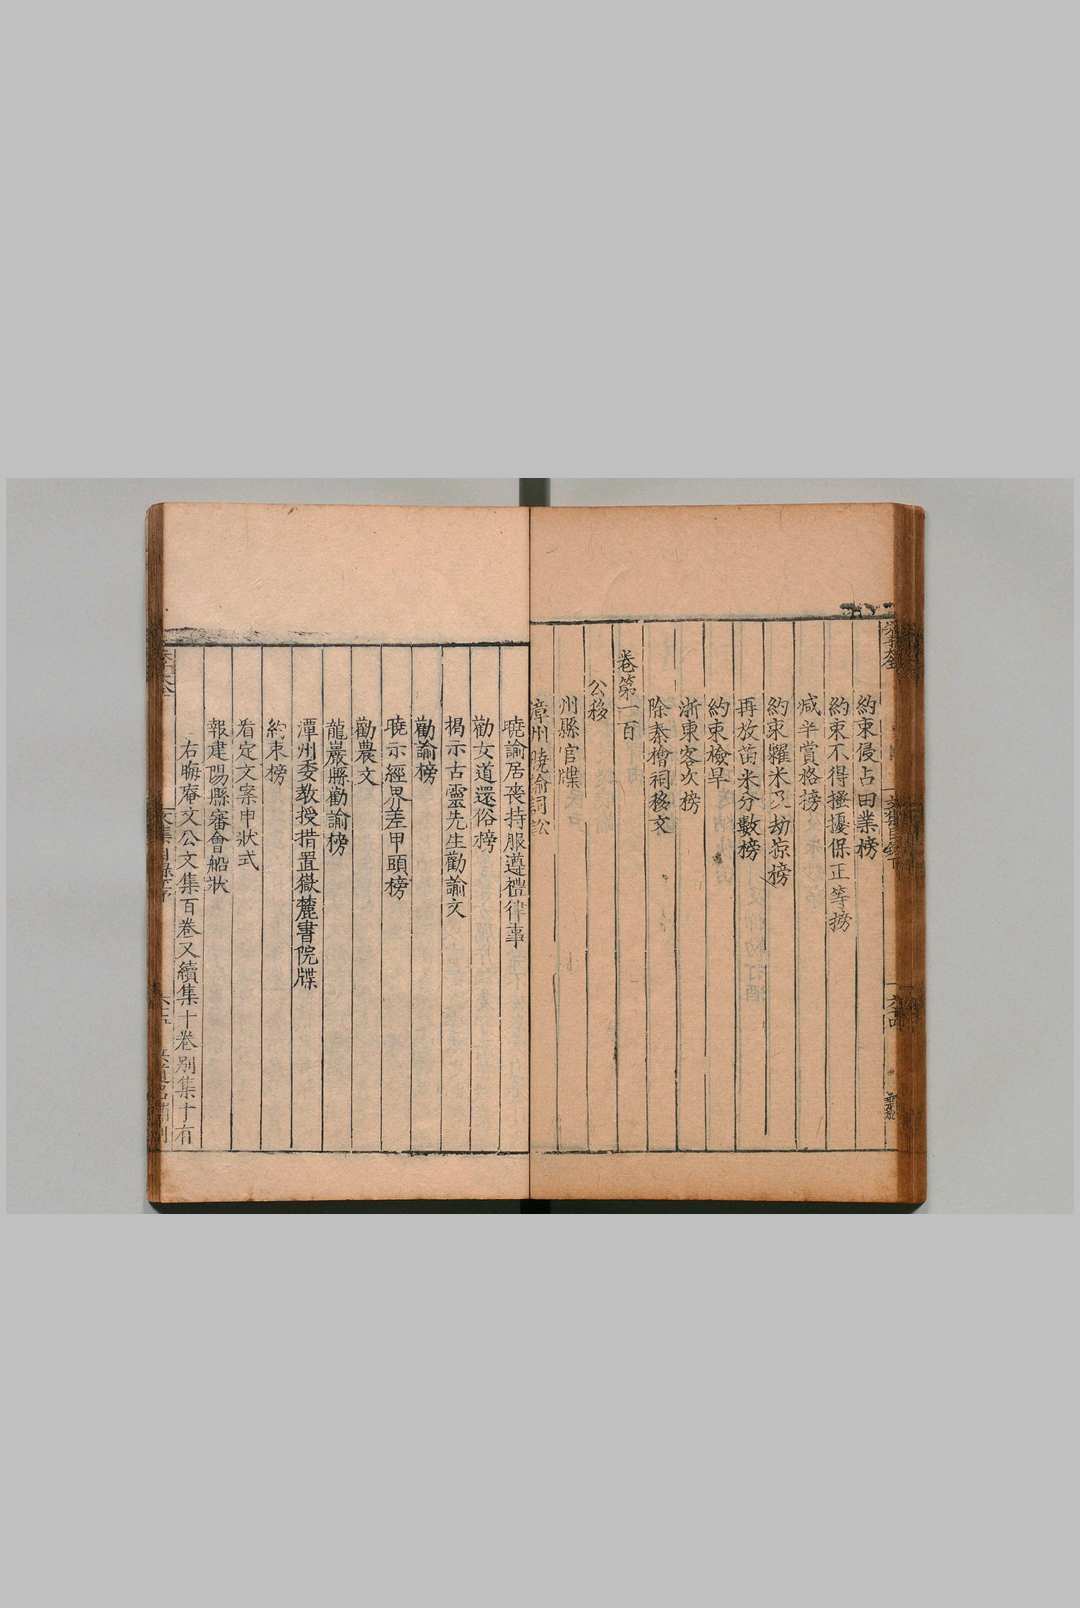 約束侵占田業榜
約束不得搔擾保正等榜
減半賞格榜
約束糴米及劫掠榜
再放苗米分數榜
約束檢旱
浙東客次榜
除秦檜祠移文
卷第一百
公移
州縣官牒
漳州曉諭詞訟
曉諭居喪持服遵禮律事
勸女道還俗榜
揭示古靈先生勸諭文
勸諭榜
曉示經界差甲頭榜
勸農文
龍巖縣勸諭榜
潭州委教授措置嶽麓書院牒
約束榜
看定文案申狀式
報建陽縣審會船狀
右晦庵文公文集百卷又續集十卷別集十有